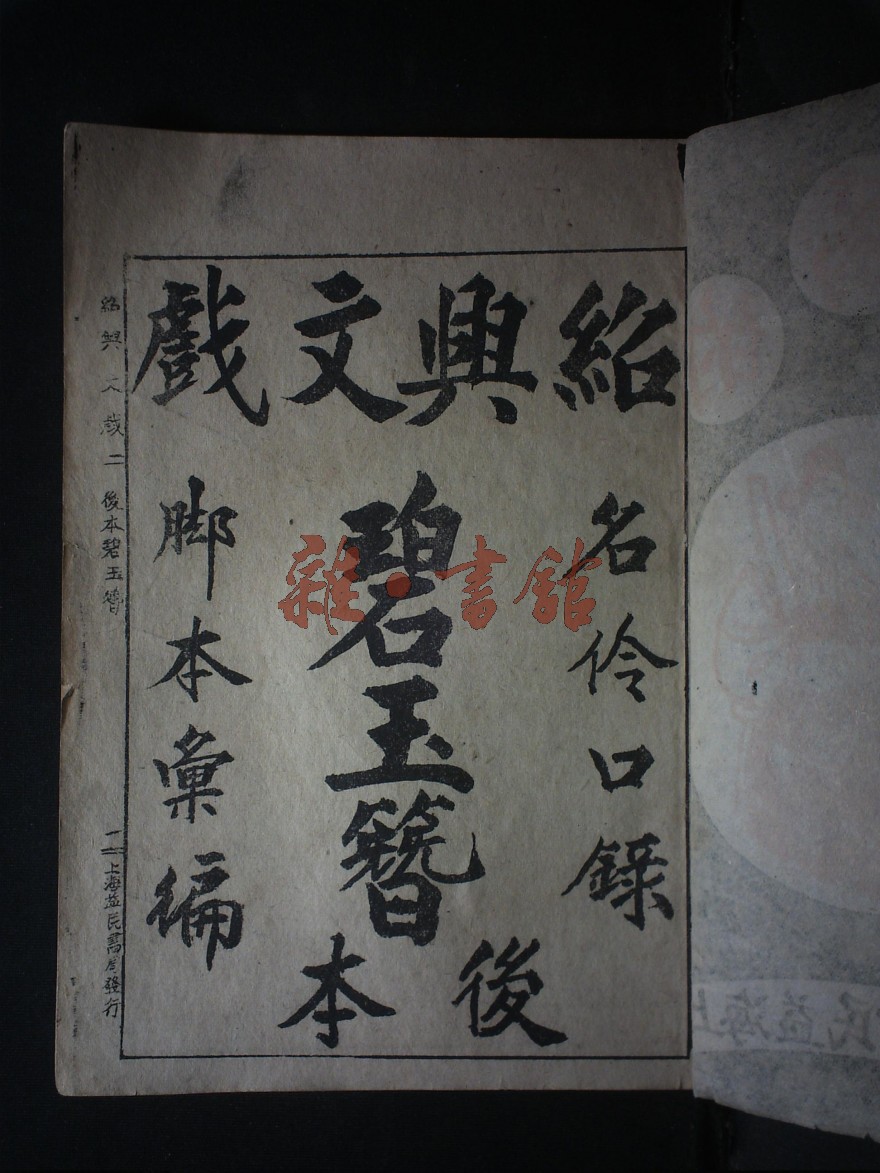 紹興文戲
名伶口錄
碧玉簪
後本
脚本彙編
紹興文戲二 後本碧玉簪
二 上海益民書局發行
雜·書館
上海益民